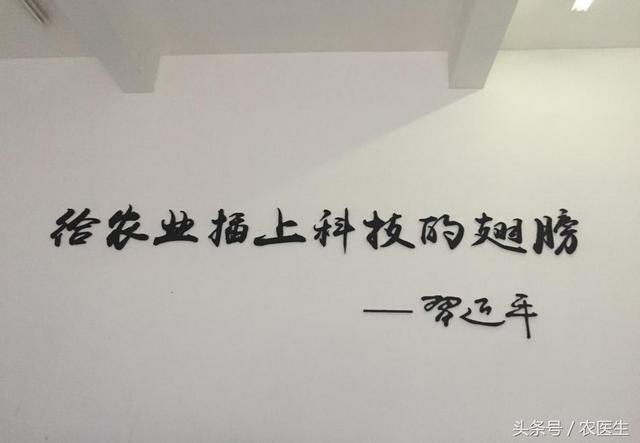 给农业插上科技的翅膀
——习近平
头条号 / 农医生